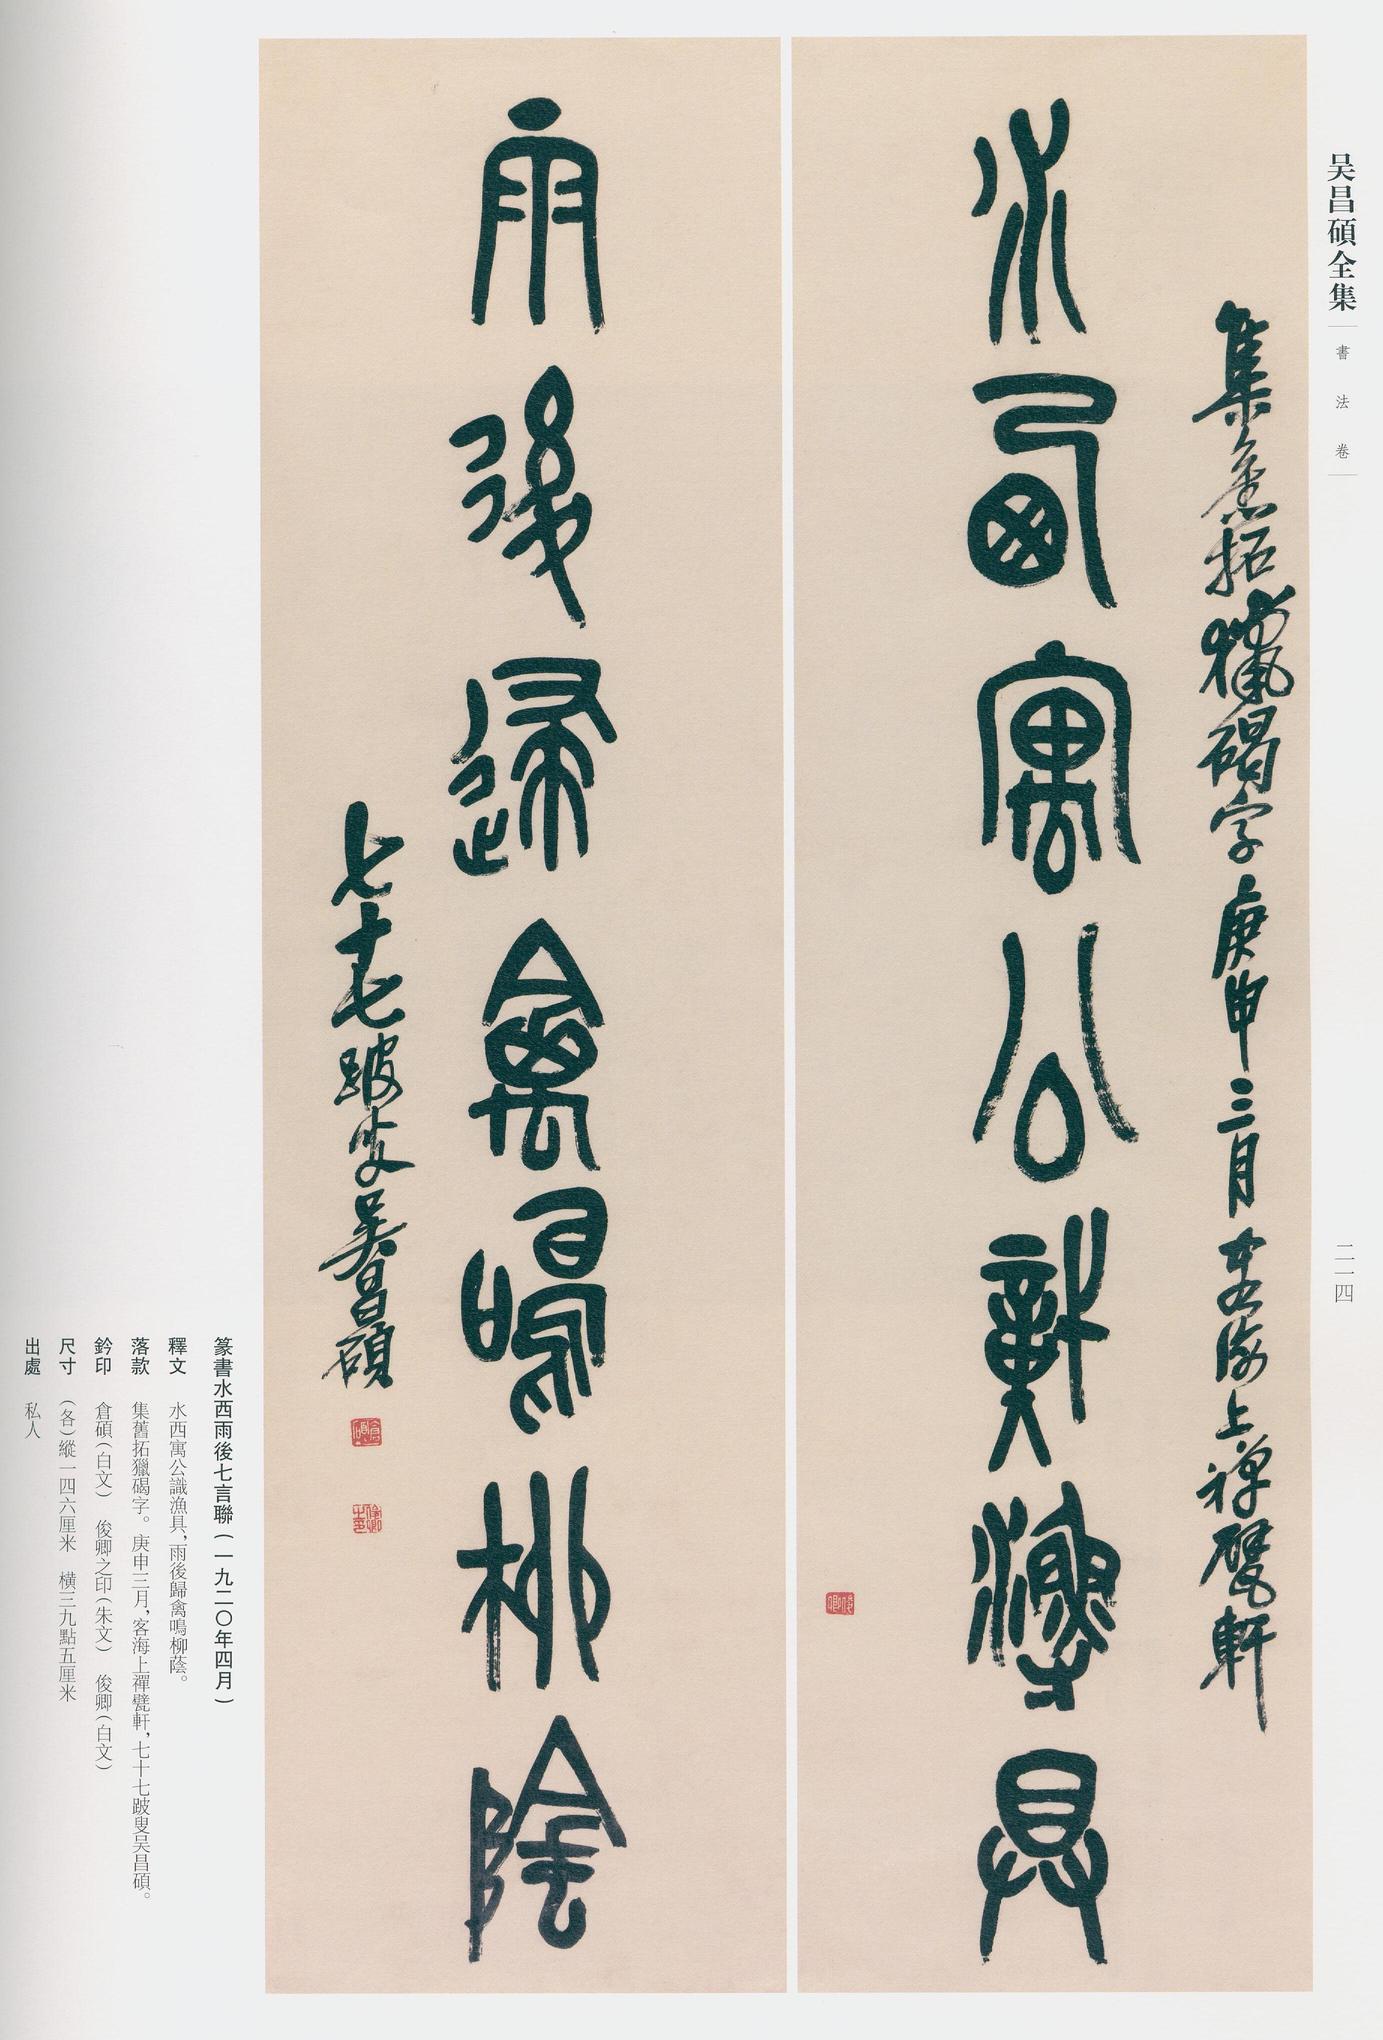 吴昌碩全集
書法卷
二一四
集舊拓獵碣字庚申三月客海上禪甓軒
水西寓公識漁具
雨後歸禽鳴柳陰
七十七跛叟吴昌碩
篆書水西雨後七言聯（一九二〇年四月）
釋文　水西寓公識漁具，雨後歸禽鳴柳蔭。
落款　集舊拓獵碣字。庚申三月，客海上禪甓軒，七十七跛叟吴昌碩。
鈐印　倉碩（白文）　俊卿之印（朱文）　俊卿（白文）
尺寸　（各）縱一四六厘米　橫三九點五厘米
出處　私人